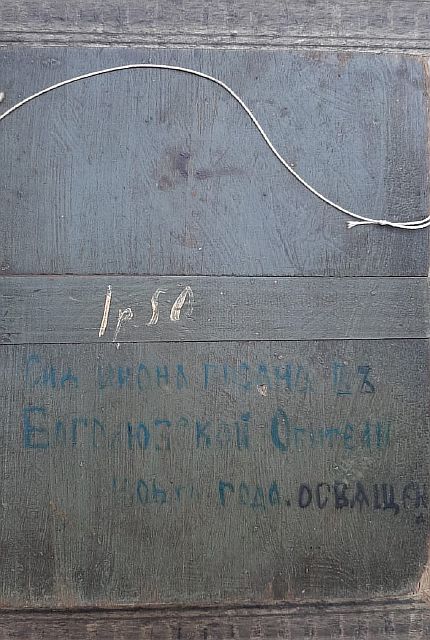 1р 50
Сия икона писана въ
Боголюбской Обители
года. освящен